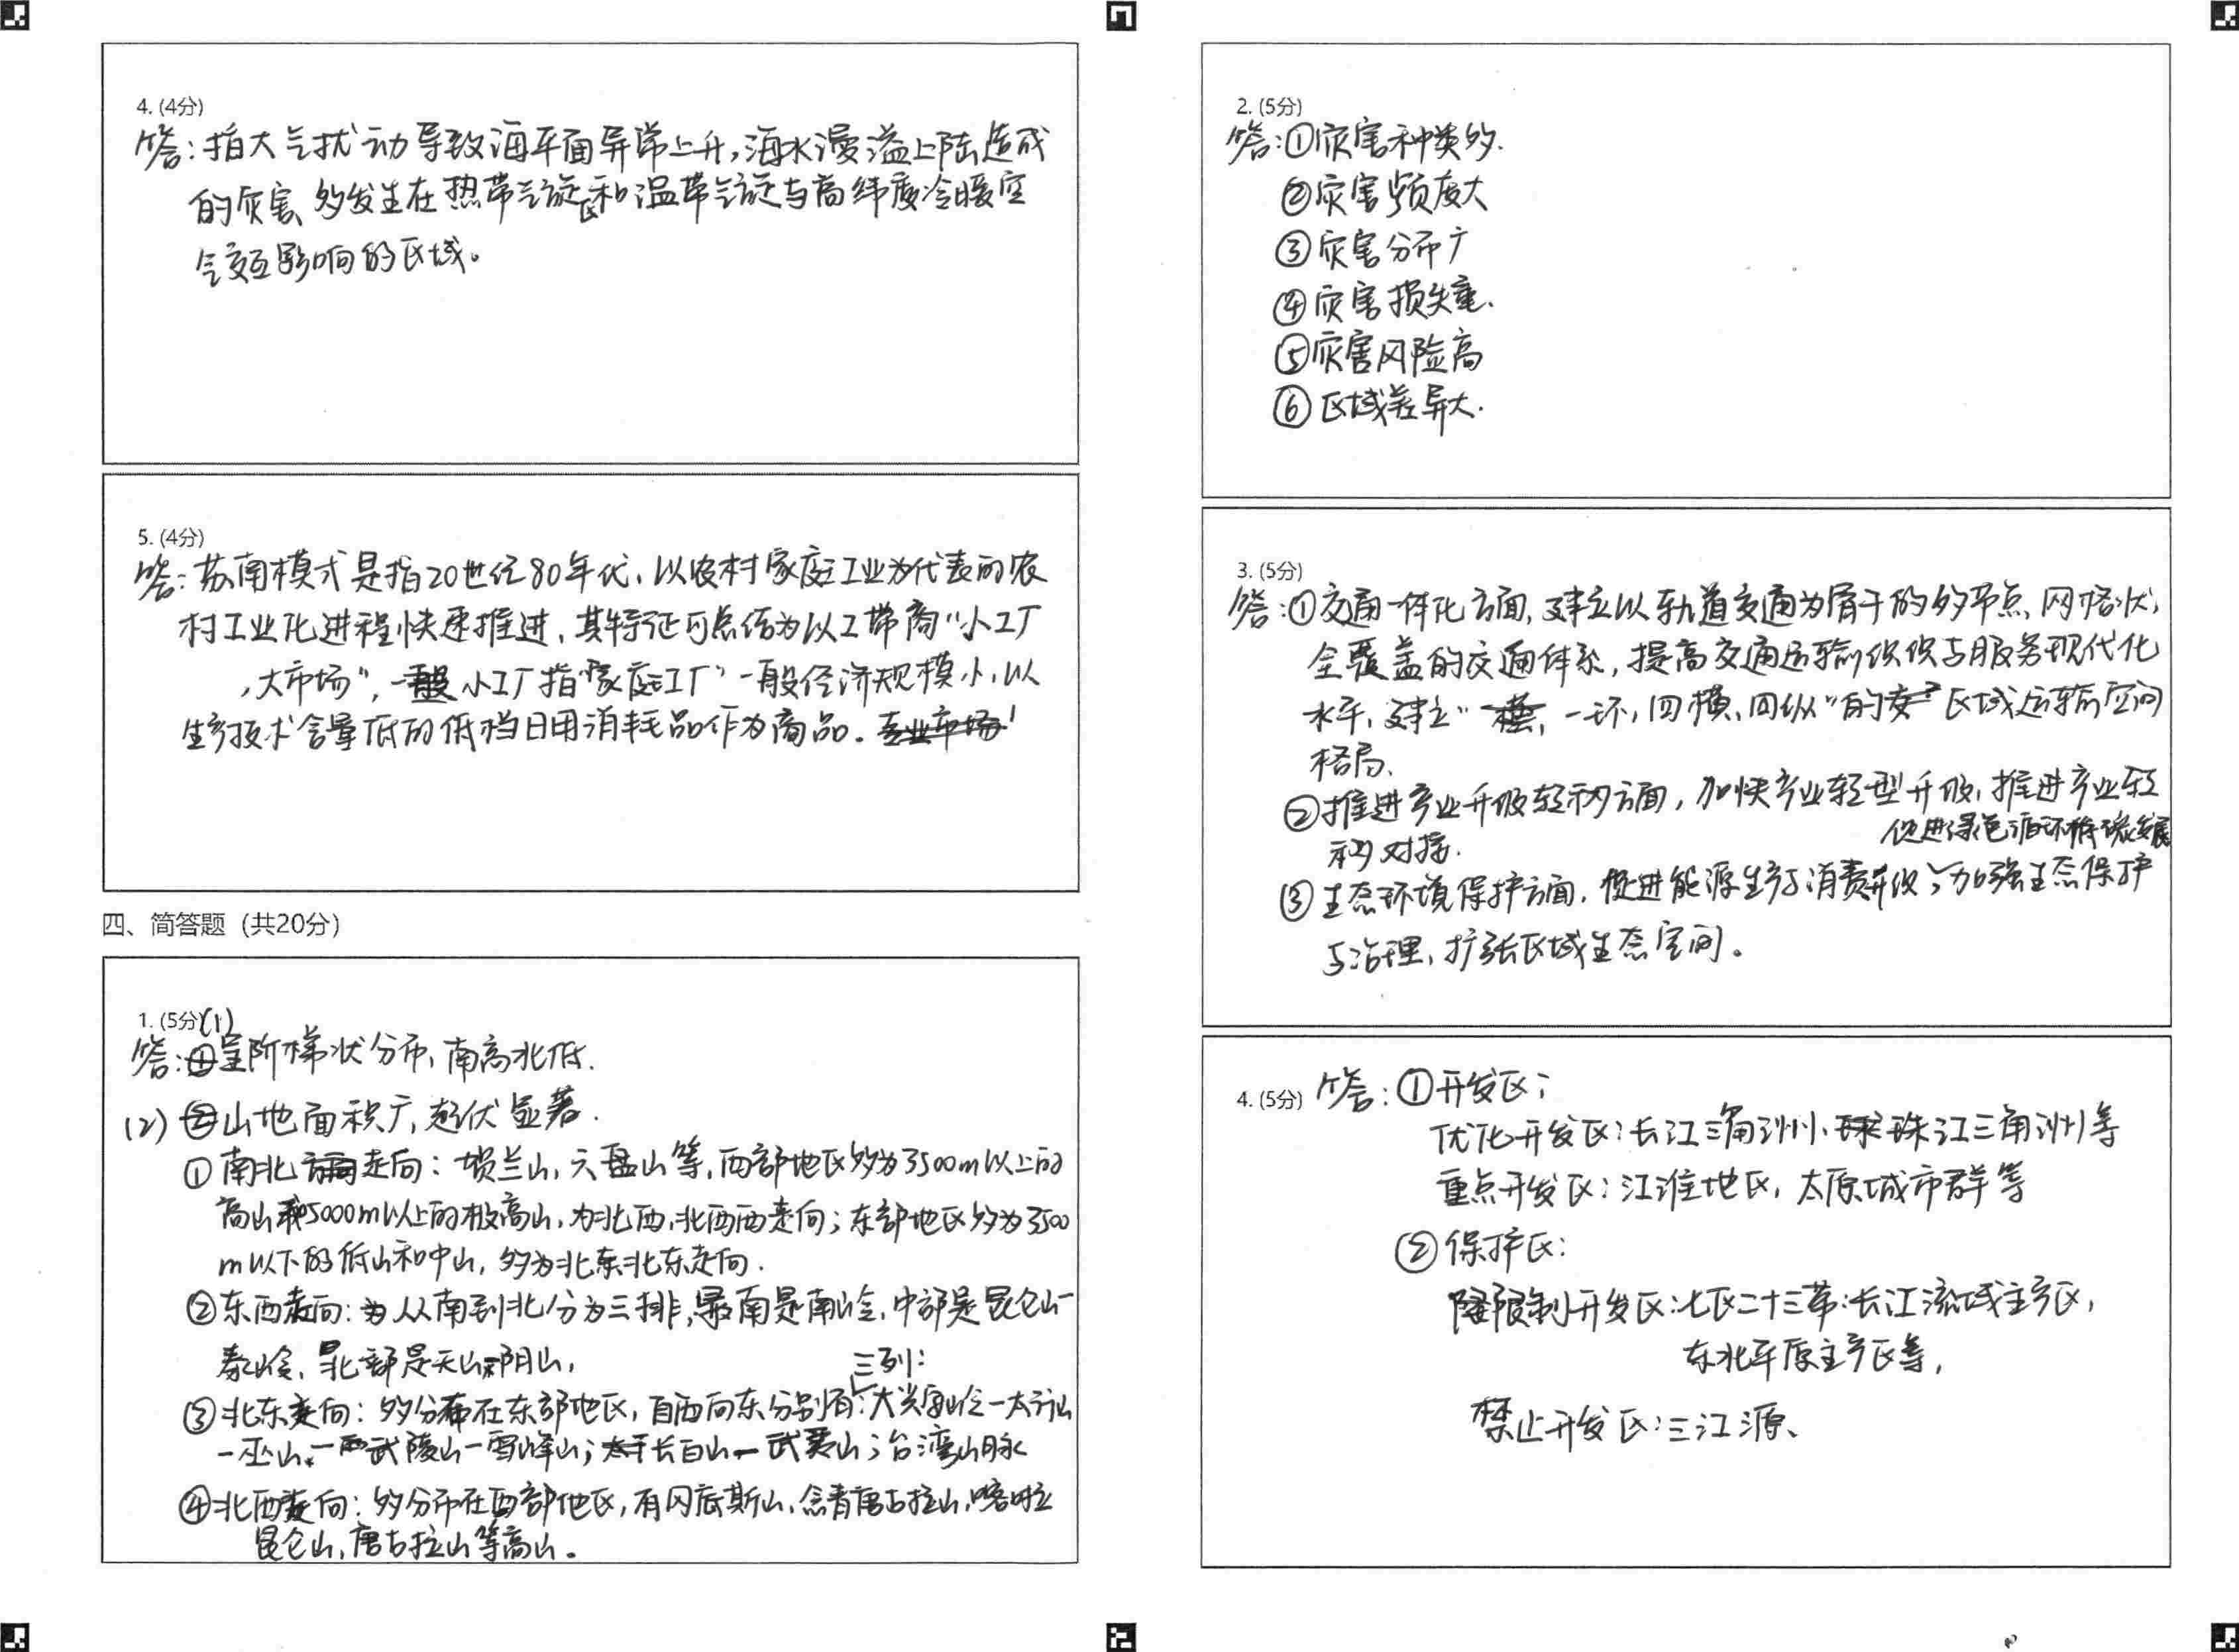 4. (4分)
答：指大气扰动导致海平面异常上升，海水漫溢上陆造成
的灾害、多发生在热带气旋区和温带气旋与高纬度冷暖空
气交互影响的区域。
5. (4分)
答：苏南模式是指20世纪80年代，以农村家庭工业为代表的农
村工业化进程快速推进，其特征可总结为以工带商“小工厂
，大市场”，小工厂指“家庭工厂”一般经济规模小，以
生产技术含量低的低档日用消耗品作为商品。
四、简答题（共20分）
1. (5分)(1)
答：呈阶梯状分布，南高北低.
(2) 山地面积广，起伏显著.
①南北走向：埙兰山，六盘山等，西部地区多为3500m以上的
高山和5000m以上的极高山，为北西，北西西走向；东部地区多为3500
m以下的低山和中山，多为北东北东走向.
②东西走向：从南到北分为三排，最南是南岭，中部是昆仑山一
秦岭，北部是天山阴山，
③北东走向：多分布在东部地区，自西向东分别有三列：大兴安岭一太行山
一巫山、武陵山一雪峰山；长白山一武夷山；台湾山脉
④北西走向：多分布在西部地区，有冈底斯山、念青唐古拉山，喀喇
昆仑山，唐古拉山等高山。
2. (5分)
答：①灾害种类多.
②灾害频度大
③灾害分布广
④灾害损失重.
⑤灾害风险高
⑥区域差异大.
3. (5分)
答：①交通一体化方面，建立以轨道交通为骨干的多节点、网格状，
全覆盖的交通体系，提高交通运输组织与服务现代化
水平，建立“一环，四横、四纵”的区域运输空间
格局、
②推进产业升级转移方面，加快产业转型升级，推进产业转
移对接.
③生态环境保护方面，促进能源生产与消费，促进绿色循环低碳发展，加强生态保护
与治理，扩张区域生态空间。
4. (5分) 答：①开发区；
优化开发区：长江三角洲、珠江三角洲等
重点开发区：江淮地区，太原城市群等
②保护区：
限制开发区：七区二十三带：长江流域主产区，
东北平原主产区等，
禁止开发区：三江源、